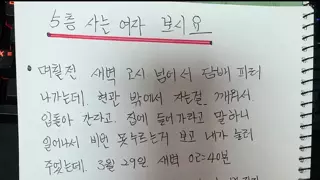 5층 사는 여자 보시요
• 며칠전 새벽 2시 넘어서 담배 피러
나가는데. 현관 밖에서 자는걸. 깨워서
입돌아 간다고. 집에 들어가라고 말하니
일어나서 비번 못누르는거 보고 내가 눌러
주었는데. 3월 29일 새벽 02:40분